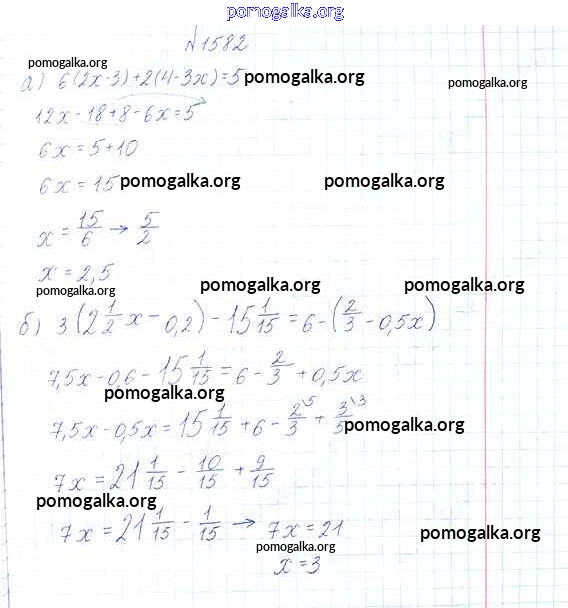 pomogalka.org
№1582
pomogalka.org
а) 6(2x-3)+2(4-3x)=5 pomogalka.org pomogalka.org
12x-18+8-6x=5
6x=5+10
6x=15 pomogalka.org pomogalka.org
x=15/6→5/2
x=2,5
pomogalka.org pomogalka.org pomogalka.org
б) 3(2 1/2 x-0,2)-15 1/15=6-(2/3-0,5x)
7,5x-0,6-15 1/15=6-2/3+0,5x
pomogalka.org
7,5x-0,5x=15 1/15+6-2/3\5+3/5\3 pomogalka.org
7x=21 1/15-10/15+9/15
pomogalka.org
7x=21 1/15-1/15→7x=21 pomogalka.org
pomogalka.org
x=3